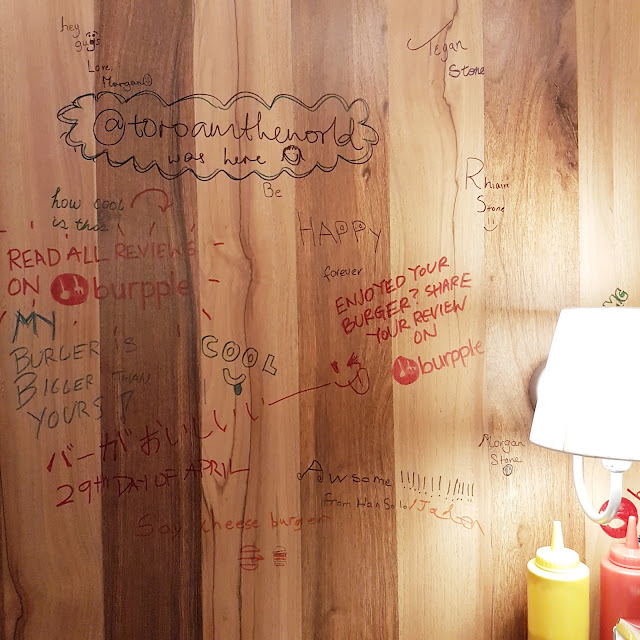 hey
guys
Love
Morgan
Tegan
Stone
@toroamtheworld
was here
Be
Rhiain
Stone
how cool
is this
HAPPY
READ ALL REVIEWS
ON burpple
forever
ENJOYED YOUR
BURGER? SHARE
YOUR REVIEW
ON
burpple
MY
BURGER IS
BIGGER THAN
YOURS!
COOL
バーガーおいしいい
29th DAY OF APRIL
Morgan
Stone
Awsome !!!!!!!!!!
from Han Solo/Jadon
Say cheese burger